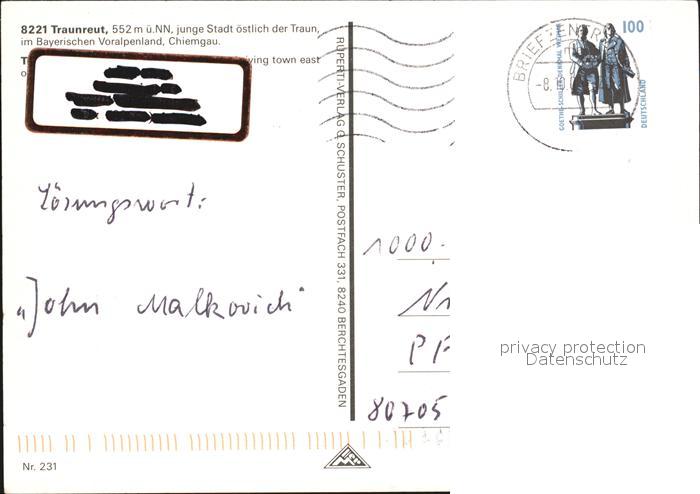 8221 Traunreut, 552 m ü.NN, junge Stadt östlich der Traun,
im Bayerischen Voralpenland, Chiemgau.
town east
RUPERTI-VERLAG G. SCHUSTER, POSTFACH 331, 8240 BERCHTESGADEN
BRIEFZENTR
-8.
100
GOETHE-SCHILLER-DENKMAL WEIMAR
DEUTSCHLAND
Lösungswort:
„John Malkovich"
1000.
PF
80705
privacy protection
Datenschutz
Nr. 231